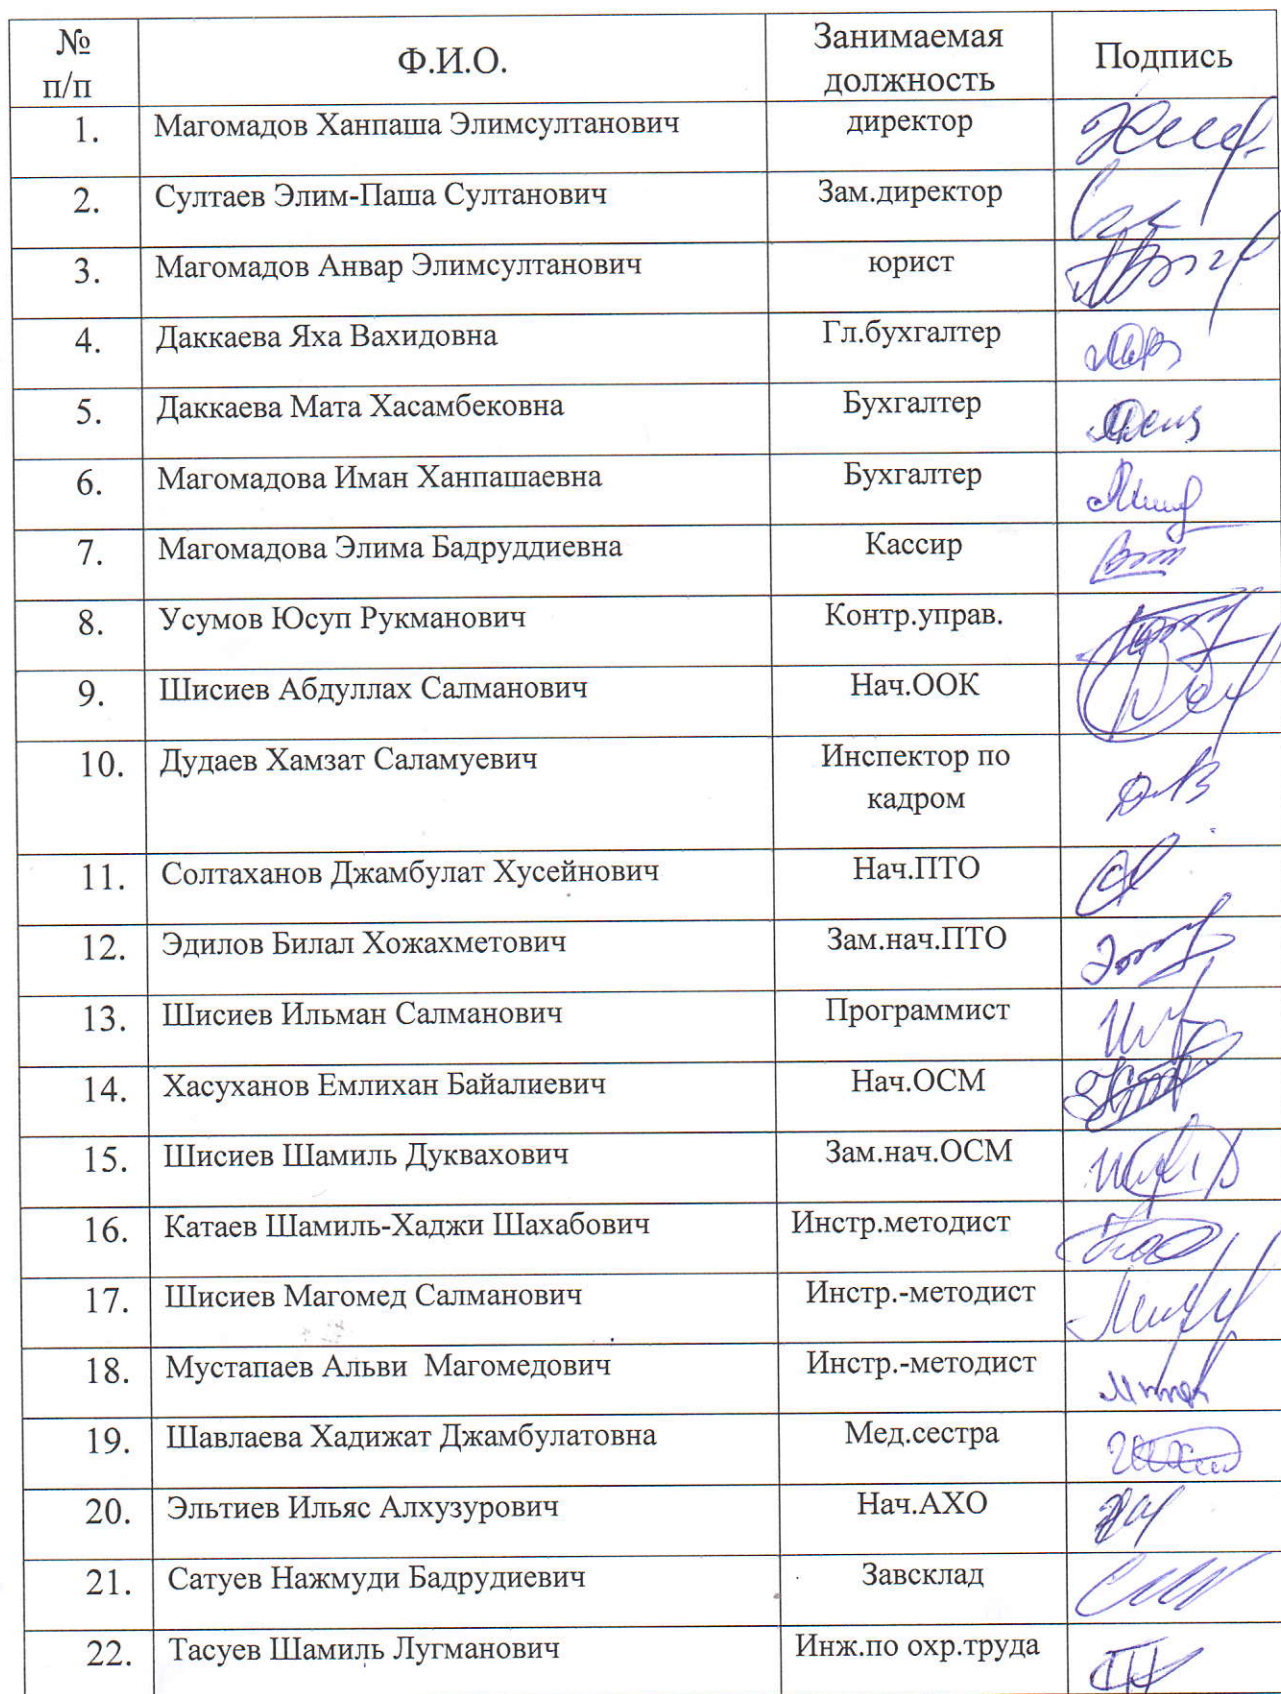 № п/п Ф.И.О. Занимаемая должность Подпись
1. Магомадов Ханпаша Элимсултанович директор
2. Султаев Элим-Паша Султанович Зам.директор
3. Магомадов Анвар Элимсултанович юрист
4. Даккаева Яха Вахидовна Гл.бухгалтер
5. Даккаева Мата Хасамбековна Бухгалтер
6. Магомадова Иман Ханпашаевна Бухгалтер
7. Магомадова Элима Бадруддиевна Кассир
8. Усумов Юсуп Рукманович Контр.управ.
9. Шисиев Абдуллах Салманович Нач.ООК
10. Дудаев Хамзат Саламуевич Инспектор по
кадром
11. Солтаханов Джамбулат Хусейнович Нач.ПТО
12. Эдилов Билал Хожахметович Зам.нач.ПТО
13. Шисиев Ильман Салманович Программист
14. Хасуханов Емлихан Байалиевич Нач.ОСМ
15. Шисиев Шамиль Дуквахович Зам.нач.ОСМ
16. Катаев Шамиль-Хаджи Шахабович Инстр.методист
17. Шисиев Магомед Салманович Инстр.-методист
18. Мустапаев Альви Магомедович Инстр.-методист
19. Шавлаева Хадижат Джамбулатовна Мед.сестра
20. Эльтиев Ильяс Алхузурович Нач.АХО
21. Сатуев Нажмуди Бадрудиевич Завсклад
22. Тасуев Шамиль Лугманович Инж.по охр.труда